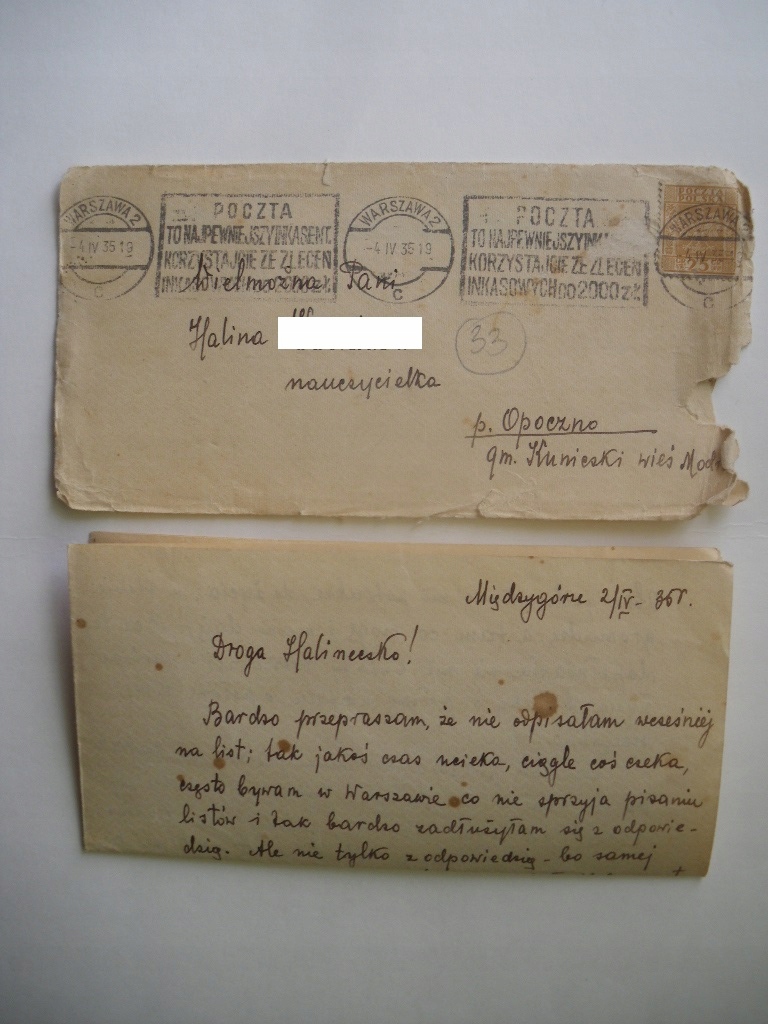 WARSZAWA 2
-4 IV 35 19
C
POCZTA
TO NAJPEWNIEJSZY INKASENT.
KORZYSTAJCIE ZE ZLECEŃ
INKASOWYCH DO 2000 zł.
WARSZAWA 2
-4 IV 35 19
C
POCZTA
TO NAJPEWNIEJSZY
KORZYSTAJCIE ZE ZLECEŃ
INKASOWYCH DO 2000 zł.
POCZTA
POLSKA
WARSZAWA 2
25
C
Wielmożna Pani
Halina
nauczycielka
33
p. Opoczno
gm. Kuniczki wieś
Międzygórze 2/IV - 35r.
Droga Halineczko!
Bardzo przepraszam, że nie odpisałam wcześniej
na list; tak jakoś czas ucieka, ciągle coś czeka,
często bywam w Warszawie co nie sprzyja pisaniu
listów i tak bardzo zadłużyłam się z odpowie-
dzią. Ale nie tylko z odpowiedzią - bo samej